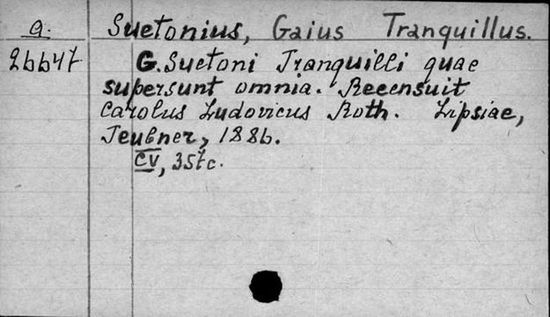 a. Suetonius, Gaius Tranquillus.
26647 G. Suetoni Tranquilli quae
supersunt omnia. Recensuit
Carolus Ludovicus Roth. Lipsiae,
Teubner, 1886.
CV, 357c.